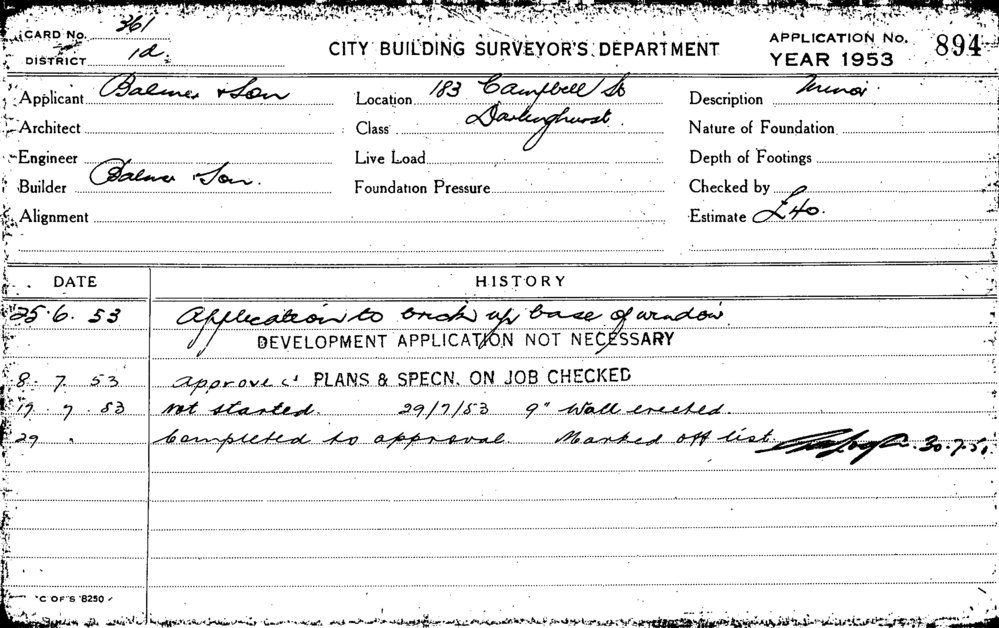 CARD No. 361
DISTRICT 1d.
CITY BUILDING SURVEYOR'S DEPARTMENT
APPLICATION No. 894
YEAR 1953
Applicant Balmer & Son
Location 183 Campbell St
Description Minor
Architect
Class Darlinghurst
Nature of Foundation
Engineer
Live Load
Depth of Footings
Builder Balmer & Son.
Foundation Pressure
Checked by
Alignment
Estimate £40.
DATE HISTORY
25.6.53 Application to brick up base of window
DEVELOPMENT APPLICATION NOT NECESSARY
8.7.53 Approved PLANS & SPECN. ON JOB CHECKED
17.7.53 Not started. 29/7/53 9" Wall erected.
29 " Completed to approval. Marked off list. 30.7.53
C OF S 8250